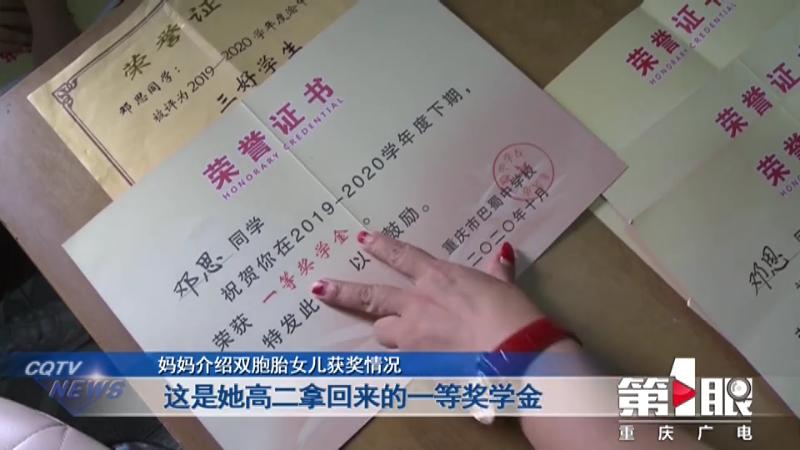 荣誉证
邓思同学:
被评为2019-2020学年度
三好学生
荣誉证书
HONORARY CREDENTIAL
邓思 同学
祝贺你在2019-2020学年度下期，
荣获 一等奖学金。
特发此 以 鼓励。
重庆市巴蜀中学校
二〇二〇年十月
荣誉证书
HONORARY CREDENTIAL
荣誉证
HONORARY CREDENTIAL
荣誉
HONORARY
邓思
CQTV
NEWS
妈妈介绍双胞胎女儿获奖情况
这是她高二拿回来的一等奖学金
第1眼
重庆广电